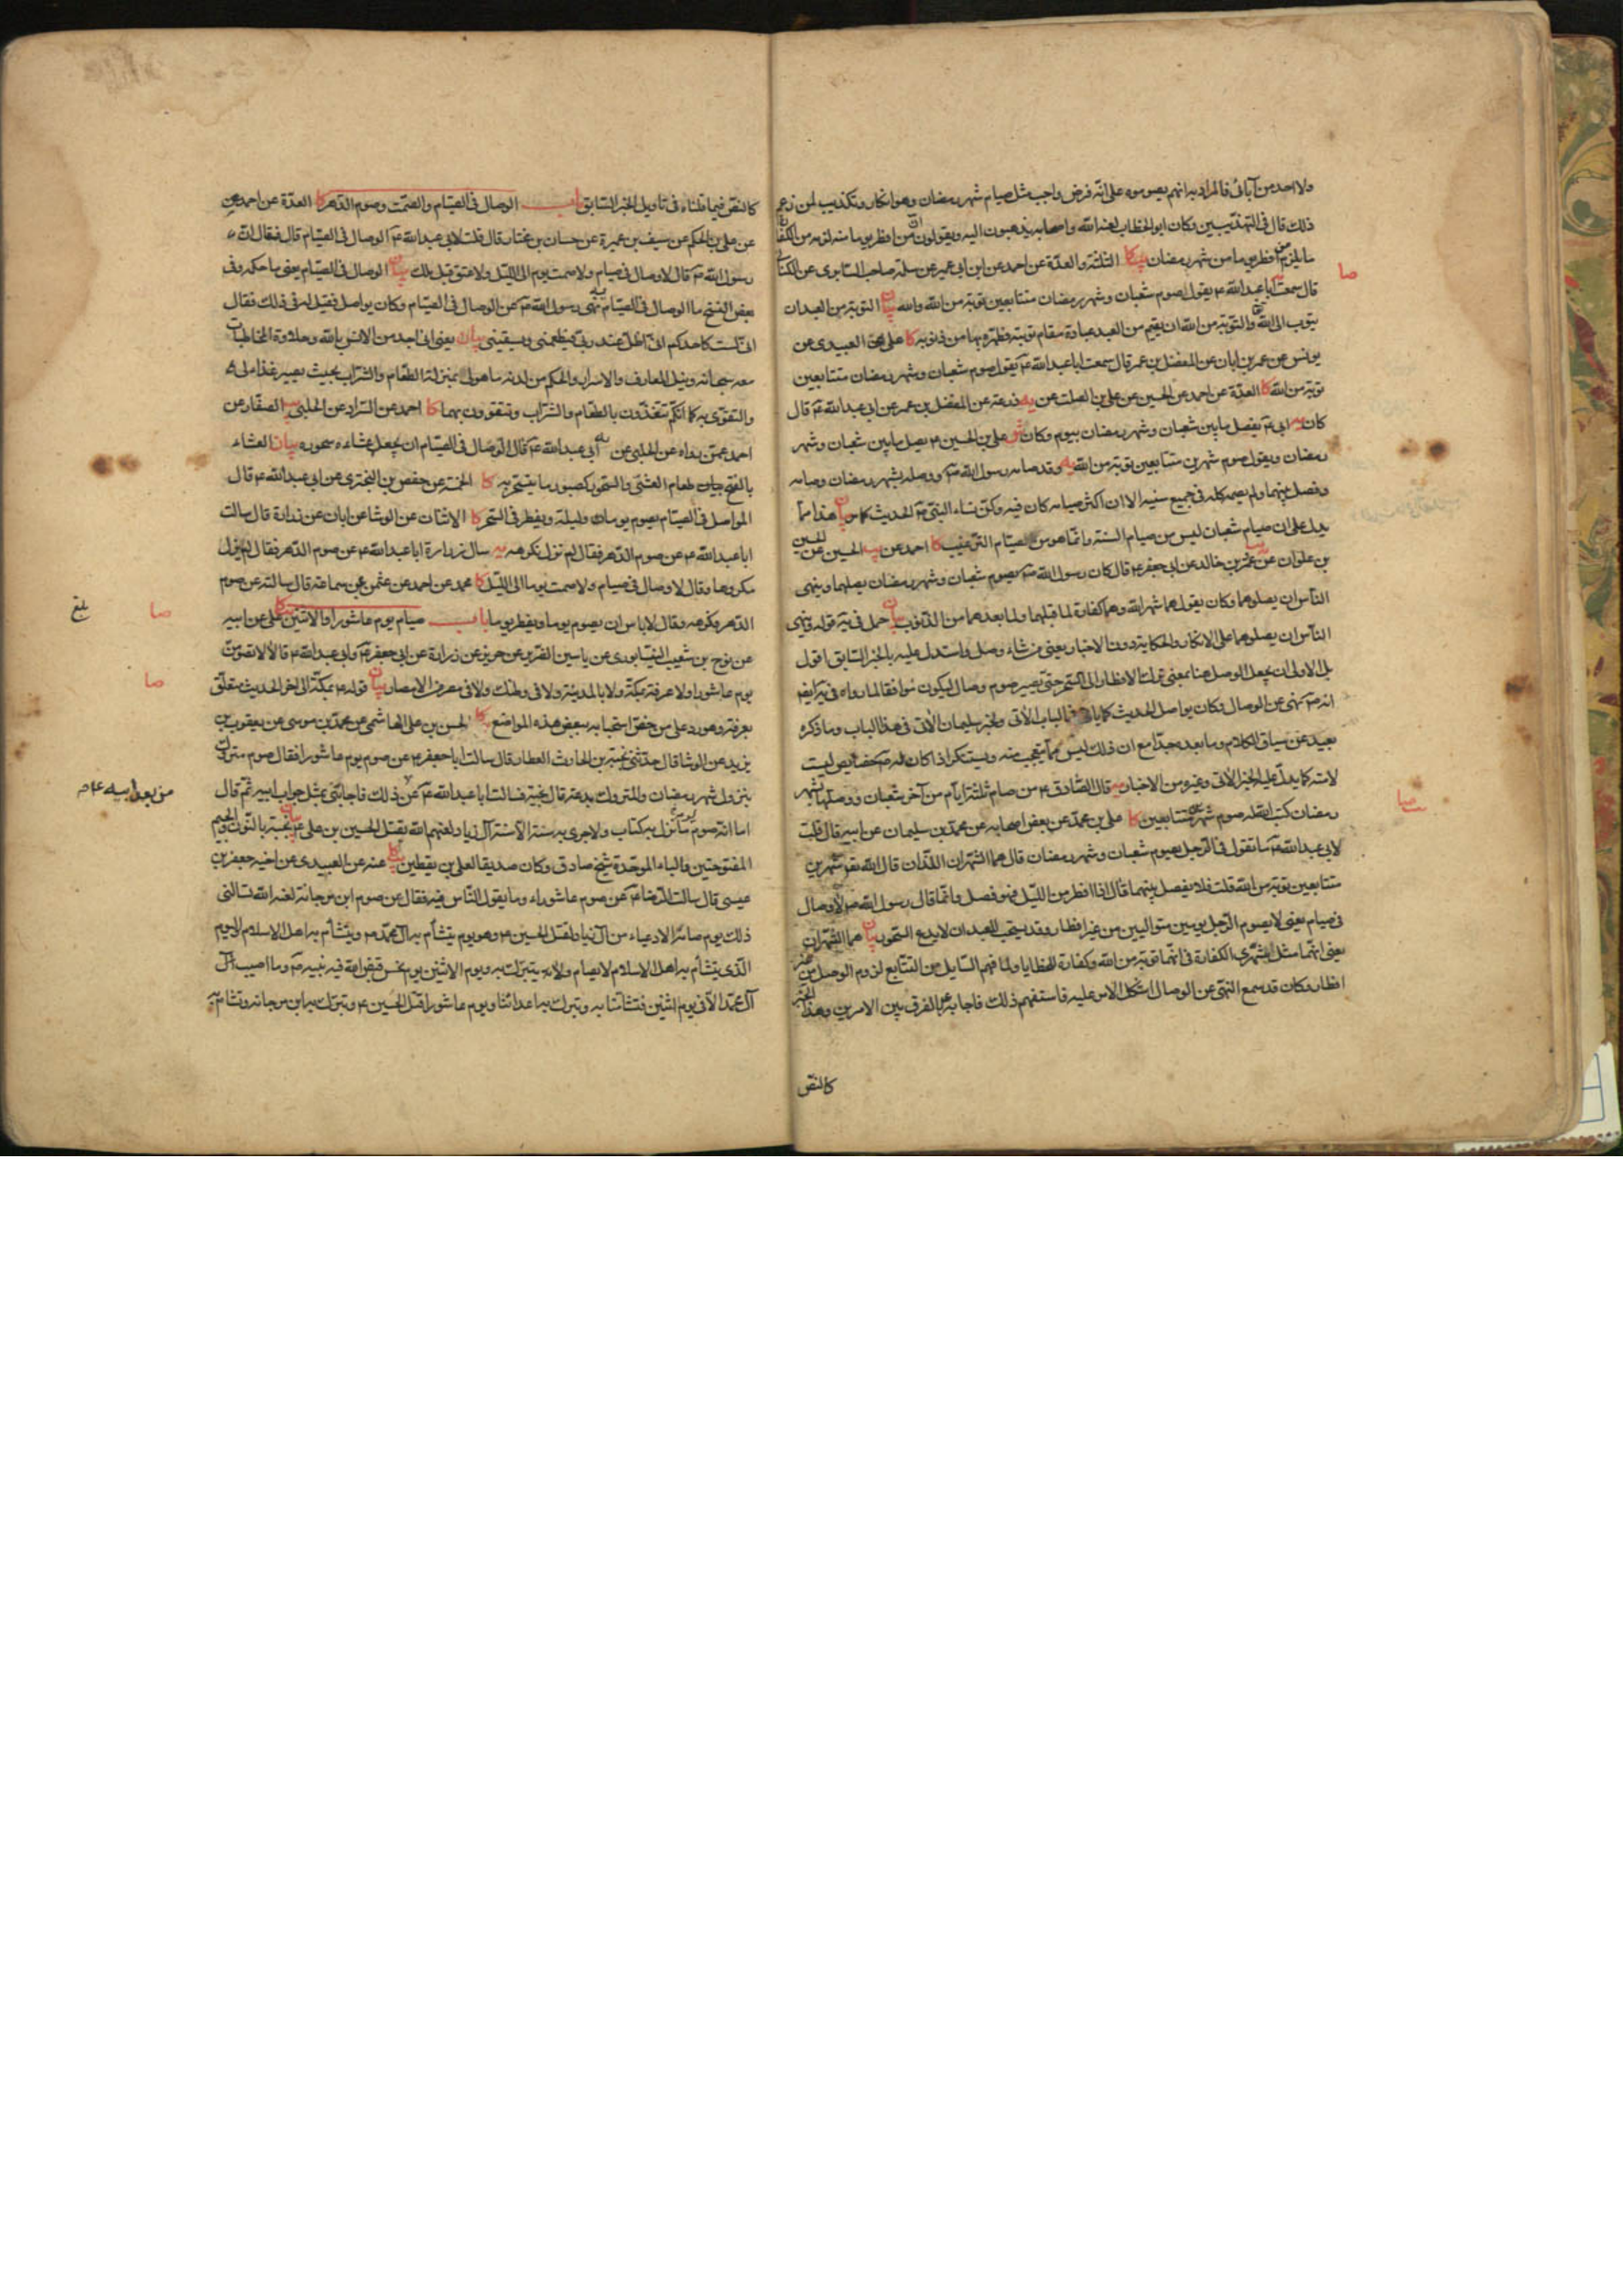 ولا احد من آبائى فالمراد به انهم يصوموه على انه فرض واجب مثل صيام شهر رمضان وهو انكار وتكذيب لمن زعم
ذلك قال فى التهذيبين وكان ابو الخطاب لعنه الله واصحابه يذهبون اليه ويقولون ان من افطر يوما منه لزمه من الكفارة
ما يلزم من افطر يوما من شهر رمضان كا الثلثة والعدة عن احمد عن ابن ابى عمير عن سلمة صاحب السابرى عن الكنانى
قال سمعت ابا عبد الله ع يقول صوم شعبان وشهر رمضان متتابعين توبة من الله والله بيان التوبة من العبد ان
يتوب الى الله والتوبة من الله ان يقيم من العبد عبادة مقام توبة فطهره بها من ذنوبه كا على عن العبيدى عن
يونس عن عمر بن ابان عن المفضل بن عمر قال سمعت ابا عبد الله ع يقول صوم شعبان وشهر رمضان متتابعين
توبة من الله كا العدة عن احمد عن الحسين عن على بن الصلت عن زرعة عن المفضل بن عمر عن ابى عبد الله ع قال
كان ابى ع يفصل ما بين شعبان وشهر رمضان بيوم وكان على بن الحسين ع يصل ما بين شعبان وشهر
رمضان ويقول صوم شهرين متتابعين توبة من الله يه وقد صامه رسول الله ص ووصله بشهر رمضان وصامه
وفصل بينهما ولم يصمه كله فى جميع سنيه الا ان اكثر صيامه كان فيه وكن نساء النبى ص الحديث كما مر بيان هذا مما
يدل على ان صيام شعبان ليس من صيام السنة وانما هو من الصيام الترغيب كا احمد عن يب الحسين عن الحسين
بن علوان عن عمرو بن خالد عن ابى جعفر ع قال كان رسول الله ص يصوم شعبان وشهر رمضان يصلهما وينهى
الناس ان يصلوهما وكان يقول هما شهر الله وهما كفارة لما قبلهما ولما بعدهما من الذنوب بيان حمل فى يه قوله وينهى
الناس ان يصلوهما على الانكار والحكاية دون الاخبار يعنى من شاء وصل واستدل عليه بالخبر السابق اقول
بل الاولى ان يجعل الوصل هنا بمعنى ترك الافطار الى السحر حتى يصير صوم وصال ليكون موافقا لما رواه فى يه ايضا
انه ص نهى عن الوصال وكان يواصل الحديث كما ياتى فى الباب الآتى ولخبر سليمان الآتى فى هذا الباب وما ذكره
بعيد عن سياق الكلام وما بعده جدا مع ان ذلك ليس مما يتعجب منه ويستنكر اذا كان له ص خصايص ليست
لامته كما يدل عليه الخبر الآتى وغيره من الاخبار يه قال الصادق ع من صام ثلثة ايام من آخر شعبان ووصلها بشهر
رمضان كتب الله له صوم شهرين متتابعين كا على بن محمد عن بعض اصحابه عن محمد بن سليمان عن ابيه قال قلت
لابى عبد الله ع ما تقول فى الرجل يصوم شعبان وشهر رمضان قال هما الشهران اللذان قال الله تع شهرين
متتابعين توبة من الله قلت فلا يفصل بينهما قال اذا افطر من الليل فهو فصل وانما قال رسول الله ص لا وصال
فى صيام يعنى لا يصوم الرجل يومين متواليين من غير افطار وقد يستحب للعبد ان لا يدع السحور بيان هما الشهران
يعنى انهما مثل شهرى الكفارة فى انهما توبة من الله وكفارة للخطايا ولما فهم السايل من التتابع لزوم الوصل من غير
افطار وكان قد سمع النهى عن الوصال اشكل الامر عليه فاستفهم ذلك فاجابه ع بالفرق بين الامرين وهذا الخبر
كالنص
صا
صا
كالنص فيما قلناه فى تاويل الخبر السابق باب الوصال فى الصيام والصمت وصوم الدهر كا العدة عن احمد عن
عن على بن الحكم عن سيف بن عميرة عن حسان بن مختار قال قلت لابى عبد الله ع ما الوصال فى الصيام قال فقال ان
رسول الله ص قال لا وصال فى صيام ولا صمت يوم الى الليل ولا عتق قبل ملك بيان الوصال فى الصيام يعنى ما حكمه وفى
بعض النسخ ما الوصال فى الصيام يه نهى رسول الله ص عن الوصال فى الصيام وكان يواصل فقيل له فى ذلك فقال
انى لست كاحدكم انى اظل عند ربى فيطعمنى ويسقينى بيان يعنى انى اجد من الانس بالله وحلاوة المخاطبات
معه سبحانه ونيل المعارف والاسرار والحكم من لدنه ما هو لى بمنزلة الطعام والشراب بحيث يصير غذاء لى
والتقوى به كما انكم تتغذون بالطعام والشراب وتتقوون بهما كا احمد عن السراد عن الحلبى يب الصفار عن
احمد عمن رواه عن الحلبى عن ابى عبد الله ع قال الوصال فى الصيام ان يجعل عشاءه سحوره بيان العشاء
بالفتح طعام العشى والسحور كصبور ما يتسحر به كا الخمسة عن حفص بن البخترى عن ابى عبد الله ع قال
المواصل فى الصيام يصوم يوما وليلة ويفطر فى السحر كا الاثنان عن الوشا عن ابان عن زرارة قال سالت
ابا عبد الله ع عن صوم الدهر فقال لم نزل نكرهه يه سال زرارة ابا عبد الله ع عن صوم الدهر فقال لم يزل
مكروها وقال لا وصال فى صيام ولا صمت يوما الى الليل كا محمد عن احمد عن عثمن عن سماعة قال سالته عن صوم
الدهر فكرهه وقال لا باس ان يصوم يوما ويفطر يوما باب صيام يوم عاشورا والاثنين كا على عن ابيه
عن نوح بن شعيب النيسابورى عن ياسين الضرير عن حريز عن زرارة عن ابى جعفر ع وابى عبد الله ع قالا لا تصومن
يوم عاشورا ولا عرفة بمكة ولا بالمدينة ولا فى وطنك ولا فى مصر من الامصار بيان قوله ع بمكة الى اخر الحديث متعلق
بعرفة وهو رد على من خص استحبابه ببعض هذه المواضع كا الحسن بن على الهاشمى عن محمد بن موسى عن يعقوب بن
يزيد عن الوشا قال حدثنى نجبة بن الحارث العطار قال سالت ابا جعفر ع عن صوم يوم عاشورا فقال صوم متروك
بنزول شهر رمضان والمتروك بدعة قال نجبة فسالت ابا عبد الله ع عن ذلك فاجابنى بمثل جواب ابيه ثم قال
اما انه صوم يوم ما نزل به كتاب ولا جرى به سنة الا سنة آل زياد لعنهم الله بقتل الحسين بن على ع بيان نجبة بالنون والجيم
المفتوحتين والباء الموحدة شيخ صادق وكان صديقا لعلى بن يقطين كا عنه عن العبيدى عن اخيه جعفر بن
عيسى قال سالت الرضا ع عن صوم عاشوراء وما يقول الناس فيه فقال عن صوم ابن مرجانة لعنه الله تسالنى
ذلك يوم صامه الادعياء من آل زياد لقتل الحسين ع وهو يوم يتشأم به آل محمد ص ويتشأم به اهل الاسلام واليوم
الذى يتشأم به اهل الاسلام لا يصام ولا يتبرك به ويوم الاثنين يوم نحس قبض الله فيه نبيه ص وما اصيب آل
آل محمد الا فى يوم اثنين فتشأمنا به وتبرك به اعدائنا ويوم عاشورا قتل الحسين ع وتبرك به ابن مرجانة وتشام به
بلغ
صا
صا
من بعد ابيه ع